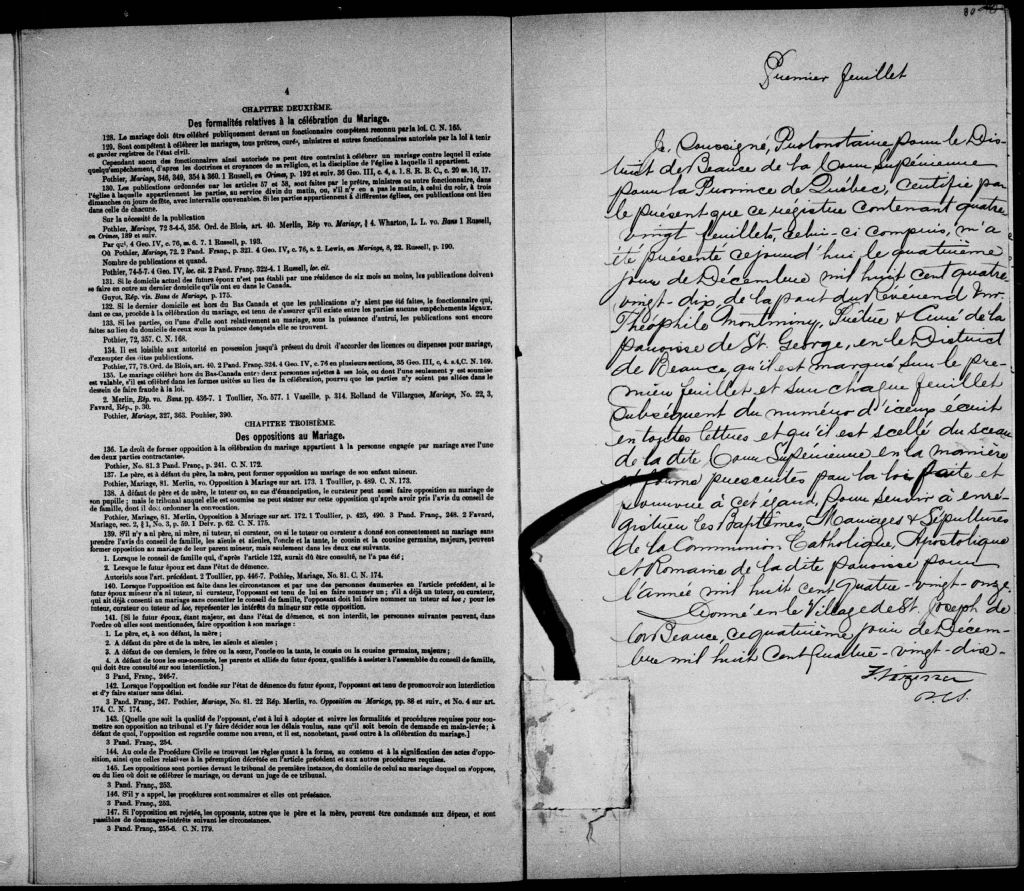 4
CHAPITRE DEUXIÈME.
Des formalités relatives à la célébration du Mariage.
128. Le mariage doit être célébré publiquement devant un fonctionnaire compétent reconnu par la loi. C. N. 165.
129. Sont compétents à célébrer les mariages, tous prêtres, curés, ministres et autres fonctionnaires autorisés par la loi à tenir
et garder registres de l'état civil.
Cependant aucun des fonctionnaires ainsi autorisés ne peut être contraint à célébrer un mariage contre lequel il existe
quelqu'empêchement, d'après les doctrines et croyances de sa religion, et la discipline de l'église à laquelle il appartient.
Pothier, Mariage, 346, 349, 354 à 360. 1 Russell, en Crimes, p. 192 et suiv. 36 Geo. III, c. 4, s. 1. S. R. B. C., c. 20 ss. 16, 17.
130. Les publications ordonnées sur les articles 57 et 58, sont faites par le prêtre, ministre ou autre fonctionnaire, dans
l'église à laquelle appartiennent les parties, au service divin du matin, ou, s'il n'y en a pas le matin, à celui du soir, à trois
dimanches ou jours de fête, avec intervalle convenables. Si les parties appartiennent à différentes églises, ces publications ont lieu
dans celle de chacune.
Sur la nécessité de la publication
Pothier, Mariage, 72 3-4-5, 356. Ord. de Blois, art. 40. Merlin, Rép vo. Mariage, § 4. Wharton, L. L. vo. Bans 1 Russell,
on Crimes, 189 et suiv.
Par qui, 4 Geo. IV, c. 76, ss. 6. 7. 1 Russell, p. 193.
Où Pothier, Mariage, 72. 2 Pand. Franç., p. 321. 4 Geo. IV, c. 76, s. 2. Lewis, on Mariage, 8, 22. Russell, p. 190.
Nombre de publications et quand.
Pothier, 74-5-7. 4 Geo. IV, loc. cit. 2 Pand Franç. 322-4. 1 Russell, loc. cit.
131. Si le domicile actuel des futurs époux n'est pas établi par une résidence de six mois au moins, les publications doivent
se faire en outre au dernier domicile qu'ils ont eu dans le Canada.
Guyot, Rép. vis. Bans de Mariage, p. 175.
132. Si le dernier domicile est hors du Bas Canada et que les publications n'y aient pas été faites, le fonctionnaire qui,
dans ce cas, procède à la célébration du mariage, est tenu de s'assurer qu'il existe entre les parties aucuns empêchements légaux.
133. Si les parties, ou l'une d'elle sont relativement au mariage, sous la puissance d'autrui, les publications sont encore
faites au lieu du domicile de ceux sous la puissance desquels elle se trouvent.
Pothier, 72, 357. C. N. 168.
134. Il est loisible aux autorité en possession jusqu'à présent du droit d'accorder des licences ou dispenses pour mariage,
d'exempter des dites publications.
Pothier, 77, 78. Ord. de Blois, art. 40. 2 Pand Franç. 324. 4 Geo. IV, c. 76 en plusieurs sections, 35 Geo. III, c. 4. s. 4, C. N. 169.
135. Le mariage célébré hors du Bas-Canada entre deux personnes sujettes à ses lois, ou dont l'une seulement y est soumise
est valable, s'il est célébré dans les formes usitées au lieu de la célébration, pourvu que les parties n'y soient pas allées dans le
dessein de faire fraude à la loi.
2. Merlin, Rép. vo. Bans. pp. 436-7. 1 Toullier, No. 577. 1 Vazeille, p. 314. Rolland de Villargues, Mariage, No. 22, 3,
Favard, Rép., p. 30.
Pothier, Mariage, 327, 363. Pouhier, 390.
CHAPITRE TROISIÈME.
Des oppositions au Mariage.
136. Le droit de former opposition à la célébration du mariage appartient à la personne engagée par mariage avec l'une
des deux parties contractantes.
Pothier, No. 81. 3 Pand Franç., p. 241. C. N. 172.
137. Le père, et à défaut du père, la mère, peut former opposition au mariage de son enfant mineur.
Pothier, Mariage, 81. Merlin, vo. Opposition à Mariage sur art. 173. 1 Toullier, p. 489. C. N. 173.
138. A défaut de père et de mère, le tuteur ou, au cas d'émancipation, le curateur peut aussi faire opposition au mariage de
son pupille; mais le tribunal auquel elle est soumise ne peut statuer sur cette opposition qu'après avoir pris l'avis du conseil
de famille, dont il doit ordonner la convocation.
Pothier, Mariage, 81. Merlin, Opposition à Mariage sur art. 172. 1 Toullier, p. 425, 490. 3 Pand. Franç., 248. 2 Favard,
Mariage, sec. 2, § 1, No. 3, p. 59. 1 Delv. p. 62. C. N. 175.
139. S'il n'y a ni père, ni mère, ni tuteur, ni curateur, ou si le tuteur ou curateur a donné son consentement au mariage sans
prendre l'avis du conseil de famille, les aïeuls et aïeules, l'oncle et la tante, le cousin et la cousine germains, majeurs, peuvent
former opposition au mariage de leur parent mineur, mais seulement dans les deux cas suivants.
1. Lorsque le conseil de famille qui, d'après l'article 122, aurait dû être consulté, ne l'a pas été;
2. Lorsque le futur époux est dans l'état de démence.
Autorités sous l'art. précédent. 2 Toullier, pp. 446-7. Pothier, Mariage, No. 81. C. N. 174.
140. Lorsque l'opposition est faite dans les circonstances et par une des personnes énumérées en l'article précédent, si le
futur époux mineur n'a ni tuteur, ni curateur, l'opposant est tenu de lui en faire nommer un; s'il a déjà un tuteur, ou curateur,
qui ait déjà consenti au mariage sans consulter le conseil de famille, l'opposant doit lui faire nommer un tuteur ad hoc; pour le
tuteur, curateur ou tuteur ad hoc, représenter les intérêts du mineur sur cette opposition.
141. [Si le futur époux, étant majeur, est dans l'état de démence, et non interdit, les personnes suivantes peuvent, dans
l'ordre où elles sont mentionnées, faire opposition à son mariage:
1. Le père, et, à son défaut, la mère;
2. A défaut du père et de la mère, les aïeuls et aïeules;
3. A défaut de ces derniers, le frère ou la sœur, l'oncle ou la tante, le cousin ou la cousine germains, majeurs;
4. A défaut de tous les sus-nommés, les parents et alliés du futur époux, qualifiés à assister à l'assemblée du conseil de famille,
qui doit être consulté sur son interdiction.]
3 Pand, Franç., 246-7.
142. Lorsque l'opposition est fondée sur l'état de démence du futur époux, l'opposant est tenu de promouvoir son interdiction
et d'y faire statuer sans délai.
3 Pand. Franç., 247. Pothier, Mariage, No. 81. 22 Rép. Merlin, vo. Opposition au Mariage, pp. 88 et suiv., et No. 4 sur art.
174. C. N. 174.
143. [Quelque que soit la qualité de l'opposant, c'est à lui à adopter et suivre les formalités et procédures requises pour sou-
mettre son opposition au tribunal et l'y faire décider sous les délais voulus, sans qu'il soit besoin de demande en main-levée; à
défaut de quoi, l'opposition est regardée comme non avenu, et il est, nonobstant, passé outre à la célébration du mariage.]
3 Pand. Franç., 254.
144. Au code de Procédure Civile se trouvent les règles quant à la forme, au contenu et à la signification des actes d'oppo-
sition, ainsi que celles relatives à la péremption décrétée en l'article précédent et aux autres procédures requises.
145. Les oppositions sont portées devant le tribunal de première instance, du domicile de celui au mariage duquel on s'oppose,
ou du lieu où doit se célébrer le mariage, ou devant un juge de ce tribunal.
3 Pand. Franç., 253.
146. S'il y a appel, les procédures sont sommaires et elles ont préséance.
3 Pand. Franç., 253.
147. Si l'opposition est rejetée, les opposants, autres que le père et la mère, peuvent être condamnés aux dépens, et sont
passibles de dommages-intérêts suivant les circonstances.
3 Pand. Franç., 255-6. C. N. 179.
80
Premier feuillet
Je, Soussigné, Protonotaire pour le Dis-
trict de Beauce de la Cour Supérieure
pour la Province de Québec, certifie par
le présent que ce régistre contenant quatre
vingt feuillets, celui-ci compris, m'a
été présenté cejourd'hui le quatrième
jour de Décembre mil huit cent quatre
vingt-dix, de la part du Révérend Mr.
Théophile Montminy, Prêtre & curé de la
paroisse de St. George, en le District
de Beauce, qu'il est marqué sur le pre-
mier feuillet et sur chaque feuillet
subséquent du numéro d'iceux écrit
en toutes lettres et qu'il est scellé du sceau
de la dite Cour Supérieure en la manière
et forme prescrites par la loi faite et
pourvue à cet égard, pour servir à enré-
gistrer les Baptêmes, Mariages & Sépultures
de la Communion Catholique, Apostolique
et Romaine de la dite paroisse pour
l'année mil huit cent quatre-vingt-onze.
Donné en le Village de St. Joseph de
la Beauce, ce quatrième jour de Décem-
bre mil huit cent quatre-vingt-dix-
P.C.S.